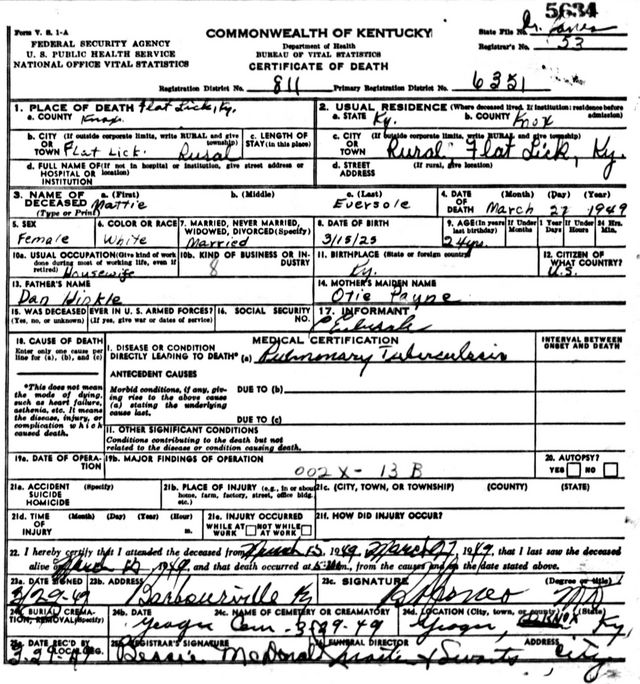 5634
Form V. S. 1-A
COMMONWEALTH OF KENTUCKY
State File No.
FEDERAL SECURITY AGENCY
U. S. PUBLIC HEALTH SERVICE
NATIONAL OFFICE VITAL STATISTICS
Department of Health
BUREAU OF VITAL STATISTICS
CERTIFICATE OF DEATH
Registrar's No. 53
Registration District No. 811 Primary Registration District No. 6351
1. PLACE OF DEATH Flat Lick, Ky.
a. COUNTY Knox
2. USUAL RESIDENCE (Where deceased lived. If institution: residence before admission)
a. STATE Ky. b. COUNTY Knox
b. CITY (If outside corporate limits, write RURAL and give township)
OR TOWN Flat Lick. Rural
c. LENGTH OF STAY (in this place)
c. CITY (If outside corporate limits, write RURAL and give township)
OR TOWN Rural Flat Lick, Ky.
d. FULL NAME OF (If not in hospital or institution, give street address or location)
HOSPITAL OR INSTITUTION
d. STREET ADDRESS (If rural, give location)
3. NAME OF DECEASED (Type or Print)
a. (First) Mattie
b. (Middle)
c. (Last) Eversole
4. DATE OF DEATH (Month) (Day) (Year)
March 27 1949
5. SEX Female
6. COLOR OR RACE White
7. MARRIED, NEVER MARRIED, WIDOWED, DIVORCED (Specify) Married
8. DATE OF BIRTH 3/15/25
9. AGE (In years last birthday) 24 yrs.
If Under 1 Year Months Days
If Under 24 Hrs. Hours Min.
10a. USUAL OCCUPATION (Give kind of work done during most of working life, even if retired) Housewife
10b. KIND OF BUSINESS OR INDUSTRY 8
11. BIRTHPLACE (State or foreign country) Ky.
12. CITIZEN OF WHAT COUNTRY? U.S.
13. FATHER'S NAME
Dan Hinkle
14. MOTHER'S MAIDEN NAME
Otie Payne
15. WAS DECEASED EVER IN U. S. ARMED FORCES?
(Yes, no, or unknown) (If yes, give war or dates of service)
16. SOCIAL SECURITY NO.
17. INFORMANT
18. CAUSE OF DEATH
Enter only one cause per line for (a), (b), and (c)
MEDICAL CERTIFICATION
INTERVAL BETWEEN ONSET AND DEATH
I. DISEASE OR CONDITION
DIRECTLY LEADING TO DEATH* (a) Pulmonary Tuberculosis
*This does not mean the mode of dying, such as heart failure, asthenia, etc. It means the disease, injury, or complication which caused death.
ANTECEDENT CAUSES
Morbid conditions, if any, giving rise to the above cause (a) stating the underlying cause last.
DUE TO (b)
DUE TO (c)
II. OTHER SIGNIFICANT CONDITIONS
Conditions contributing to the death but not related to the disease or condition causing death.
19a. DATE OF OPERATION
19b. MAJOR FINDINGS OF OPERATION
002X - 13 B
20. AUTOPSY?
YES NO
21a. ACCIDENT SUICIDE HOMICIDE (Specify)
21b. PLACE OF INJURY (e.g., in or about home, farm, factory, street, office bldg. etc.)
21c. (CITY, TOWN, OR TOWNSHIP) (COUNTY) (STATE)
21d. TIME OF INJURY (Month) (Day) (Year) (Hour) m.
21e. INJURY OCCURRED
WHILE AT WORK NOT WHILE AT WORK
21f. HOW DID INJURY OCCUR?
22. I hereby certify that I attended the deceased from March 15, 1949, March 27, 1949, that I last saw the deceased
alive on March 15, 1949, and that death occurred at m., from the causes and on the date stated above.
23a. DATE SIGNED 3/29-49
23b. ADDRESS Barbourville Ky
23c. SIGNATURE (Degree or title) MD
24. BURIAL, CREMATION, REMOVAL (Specify)
24b. DATE 3-29-49
24c. NAME OF CEMETERY OR CREMATORY Yeager Cem
24d. LOCATION (City, town, or county) (State)
Yeager, KNOX Ky.
25a. DATE REC'D BY LOCAL REG. 3-29-49
REGISTRAR'S SIGNATURE Bessie McDonald
FUNERAL DIRECTOR
ADDRESS City